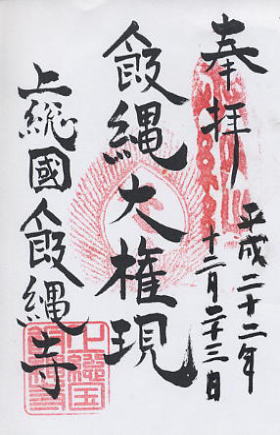 奉拝
平成二十二年
十二月二十三日
飯縄大権現
上総國飯縄寺